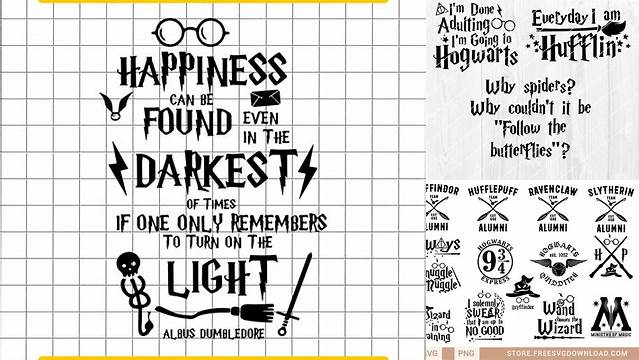 HAPPINESS
CAN BE
FOUND EVEN
IN THE
DARKEST
OF TIMES
IF ONE ONLY REMEMBERS
TO TURN ON THE
LIGHT
ALBUS DUMBLEDORE
I'm Done
Adulting
I'm Going to
Hogwarts
Everyday I am
Hufflin'
Why spiders?
Why couldn't it be
"Follow the
butterflies"?
FINDOR
TEAM
ALUMNI
HUFFLEPUFF
TEAM
ALUMNI
RAVENCLAW
TEAM
ALUMNI
SLYTHERIN
TEAM
ALUMNI
ways
nuggle
nuggle
HOGWARTS
9 3/4
EXPRESS
HOGWARTS
QUIDDITCH
H P
Gryffindor
izard
in
raining
I solemnly
SWEAR
that I am up to
NO GOOD
Wand
chooses the
Wizard
M
MINISTRY OF MAGIC
VG PNG STORE.FREESVGDOWNLOAD.COM